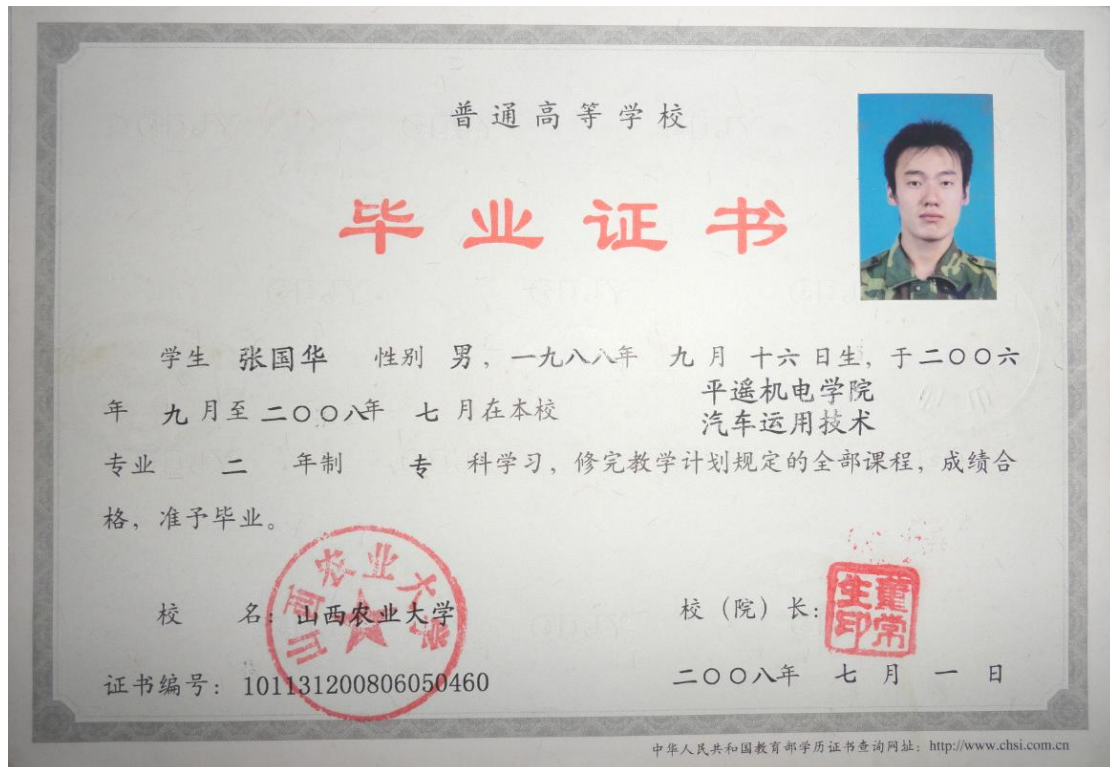 普通高等学校
毕业证书
学生 张国华 性别 男，一九八八年 九 月 十六 日生，于二〇〇六
年 九 月至 二〇〇八年 七 月在本校 平遥机电学院
汽车运用技术
专业 二 年制 专 科学习，修完教学计划规定的全部课程，成绩合
格，准予毕业。
山西农业大学
校 名：山西农业大学
校（院）长：
董常生印
证书编号：101131200806050460
二〇〇八年 七 月 一 日
中华人民共和国教育部学历证书查询网址：http://www.chsi.com.cn